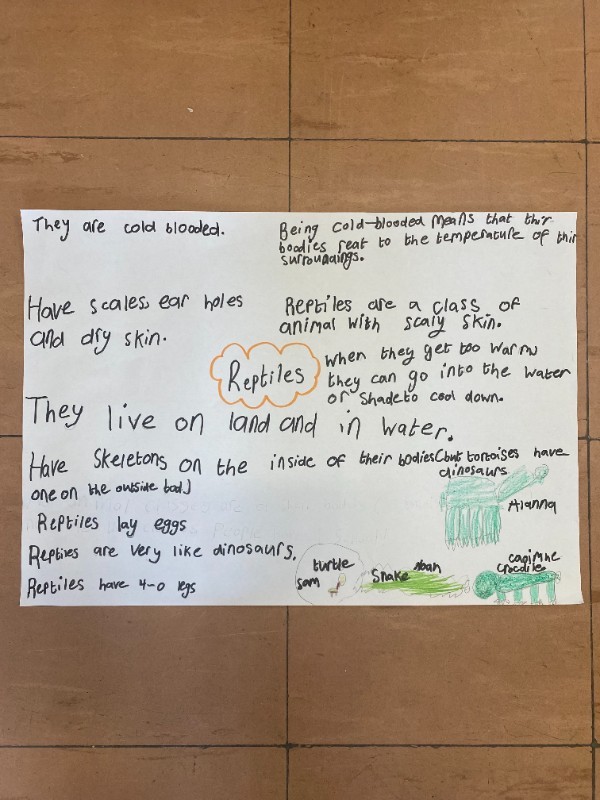 They are cold blooded.
Being cold-blooded means that thir
bodies reat to the temperature of thir
surroundings.
Have scales, ear holes
and dry skin.
Reptiles are a class of
animal with scaly skin.
Reptiles
when they get too warm
they can go into the water
or shade to cool down.
They live on land and in water.
Have Skeletons on the inside of their bodies (but tortoises have
one on the outside too)
dinosaurs
Alanna
Reptiles lay eggs
Reptiles are very like dinosaurs.
Reptiles have 4-0 legs
turtle
sam
Snake
caoimhe
crocodile